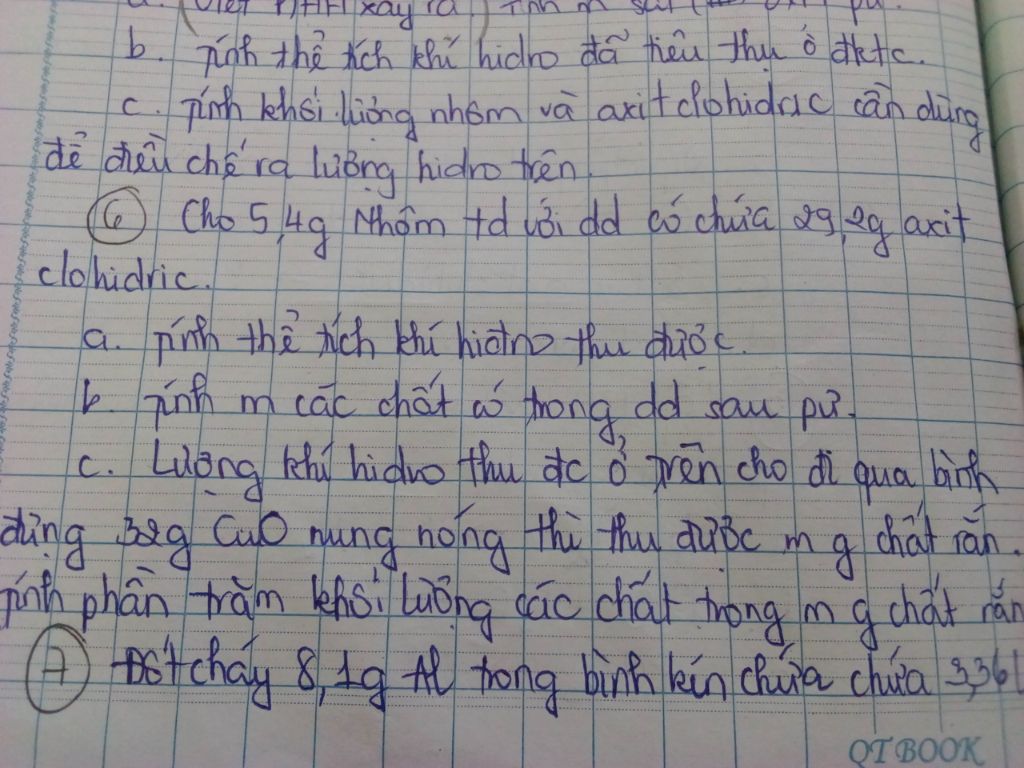 a. (Viết PTHH xảy ra) Tính m sắt
b. Tính thể tích khí hidro đã tiêu thụ ở đktc.
c. Tính khối lượng nhôm và axit clohidric cần dùng
để điều chế ra lượng hidro trên.
6 Cho 5,4g Nhôm td với dd có chứa 29,2g axit
clohidric.
a. Tính thể tích khí hidro thu được.
b. Tính m các chất có trong dd sau pứ.
c. Lượng khí hidro thu đc ở trên cho đi qua bình
đựng 32g CuO nung nóng thì thu được m g chất rắn.
Tính phần trăm khối lượng các chất trong m g chất rắn
7 Đốt cháy 8,1g Al trong bình kín chứa chứa 3,36l
QT BOOK